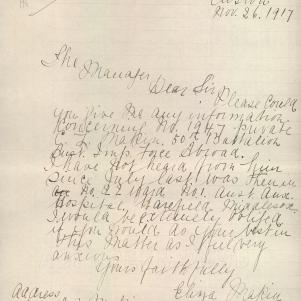 Nov. 26. 1917
The Manager
Dear Sir Please Could
you Give me any information
Concerning No. 1947 Private
Makin. 50th Battalion
Aust. Imp. Force Abroad.
I have not heard from him
Since July last was then in
No. 22 Ward No. 1. Aust. Aux.
Hospital, Harefield Middlesex.
I would be extremely obliged
if you would do your best in
this Matter as I feel very
anxious.
Yours Faithfully
Eliza Makin
Address